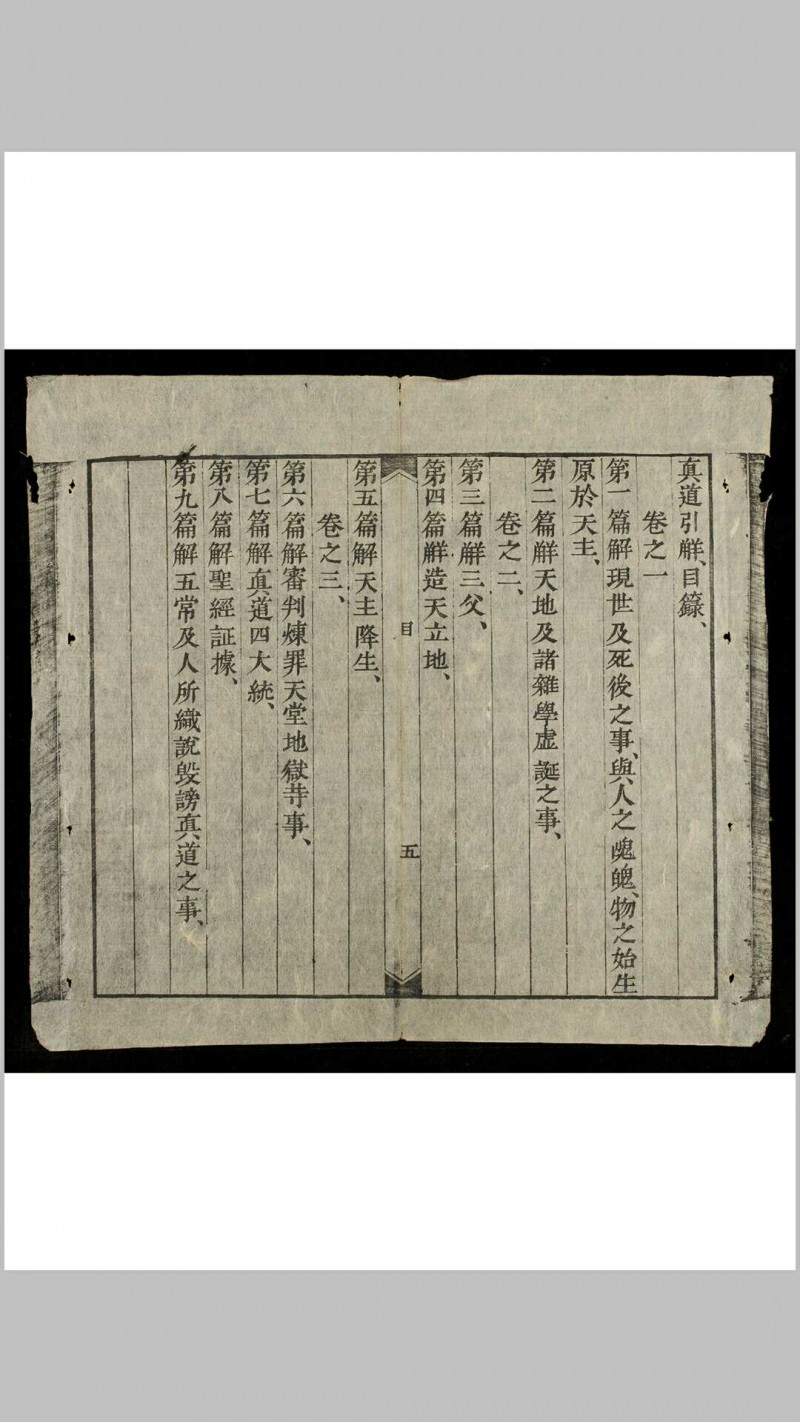 真道引觧、目籙、
卷之一
第一篇解現世及死後之事、與人之魂魄、物之始生
原於天主、
第二篇觧天地及諸雜學虛誕之事、
卷之二、
第三篇觧三父、
第四篇觧造天立地、
目
五
第五篇解天主降生、
卷之三、
第六篇解審判煉罪天堂地獄䓁事、
第七篇解真道四大統、
第八篇解聖經証據、
第九篇解五常及人所織說毀謗真道之事、